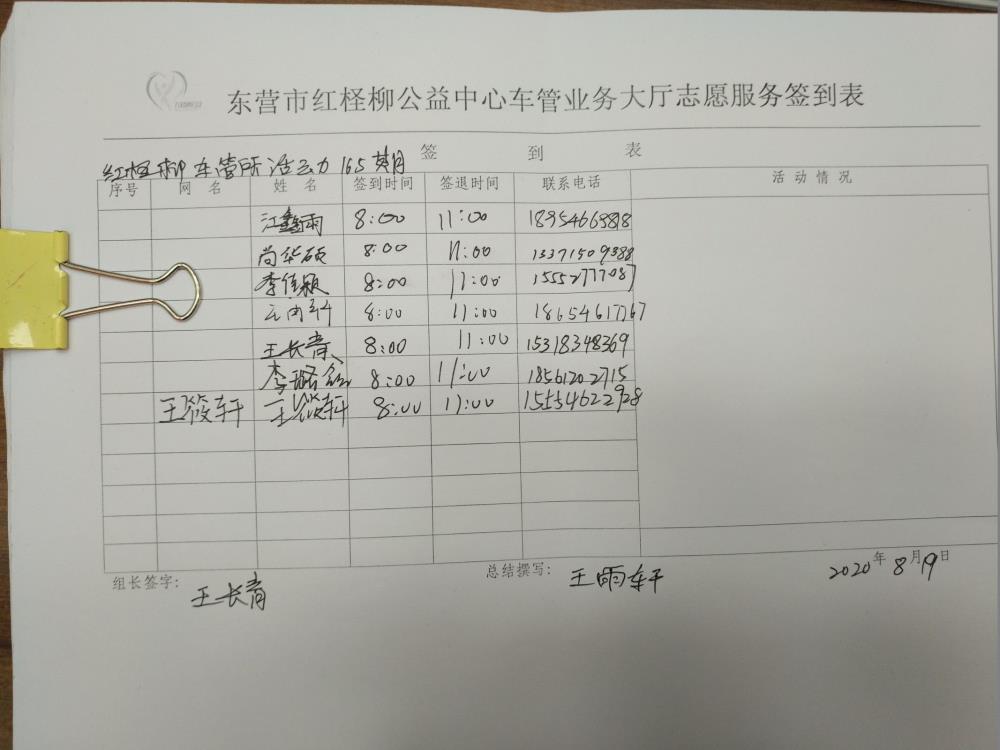 东营市红柽柳公益中心车管业务大厅志愿服务签到表
签 到 表
红柽柳车管所活动165期
序号 网名 姓名 签到时间 签退时间 联系电话 活动情况
江鑫雨 8:00 11:00 18954669818
尚华硕 8:00 11:00 13371509388
李佳颖 8:00 11:00 15552777087
8:00 11:00 18654617767
王长青 8:00 11:00 15318348369
李璐 8:00 11:00 18561202715
王筱轩 王筱轩 8:00 11:00 15554622928
组长签字: 王长青 总结撰写: 王雨轩 2020年8月19日